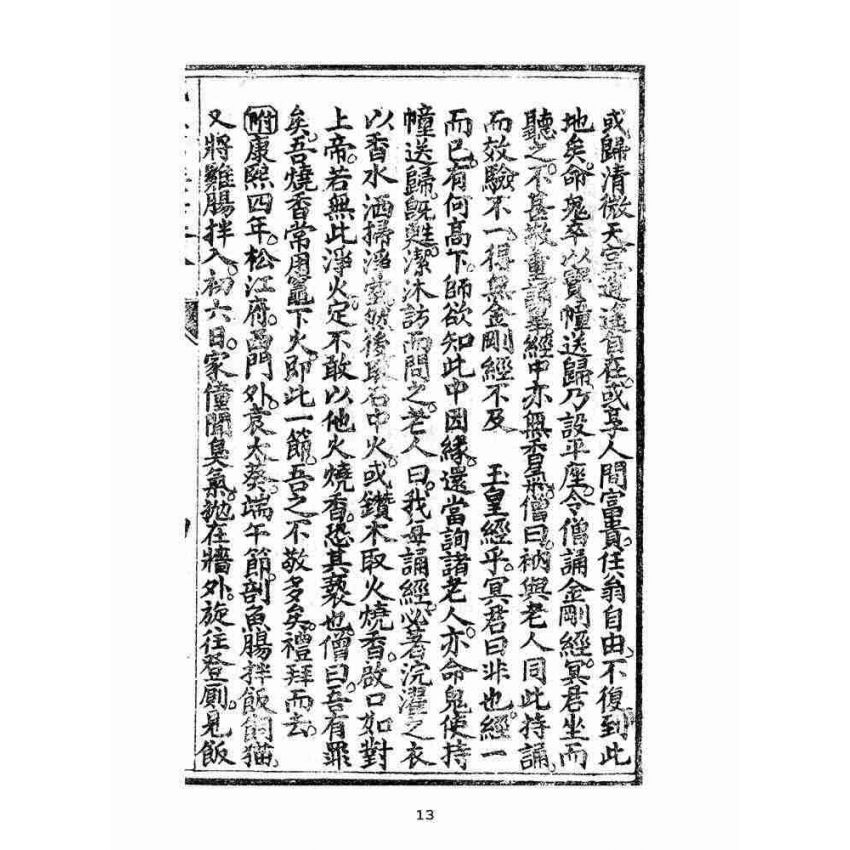 或歸清微天宮逍遙自在。或享人間富貴。任翁自由。不復到此
地矣。命鬼卒以寶幢送歸。乃設平座。令僧誦金剛經。冥君坐而
聽之。不甚敬重。誦畢。經中亦無香氣。僧曰。衲與老人同此持誦。
而效驗不一。得無金剛經不及 玉皇經乎。冥君曰。非也。經一
而已。有何高下。師欲知此中因緣。還當詢諸老人。亦命鬼使持
幢送歸。旣甦。潔沐訪而問之。老人曰。我每誦經。必著浣濯之衣
以香水洒掃淨室。然後取石中火。或鑽木取火燒香。啟口如對
上帝。若無此淨火。定不敢以他火燒香。恐其褻也。僧曰。吾有罪
矣。吾燒香常用竈下火。即此一節。吾之不敬多矣。禮拜而去。
附康熙四年。松江府。西門外。袁太葵。端午節。剖魚腸拌飯飼猫。
又將雞腸拌入。初六日。家僮聞臭氣。拋在牆外。旋往登厠。見飯
13